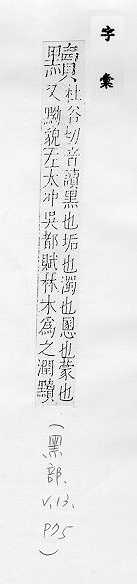 字彙
黷
杜谷切音讀黑也垢也濁也慁也蒙也
又黝貌左太冲吳都賦林木為之潤黷
(黑部. V.13. P75)